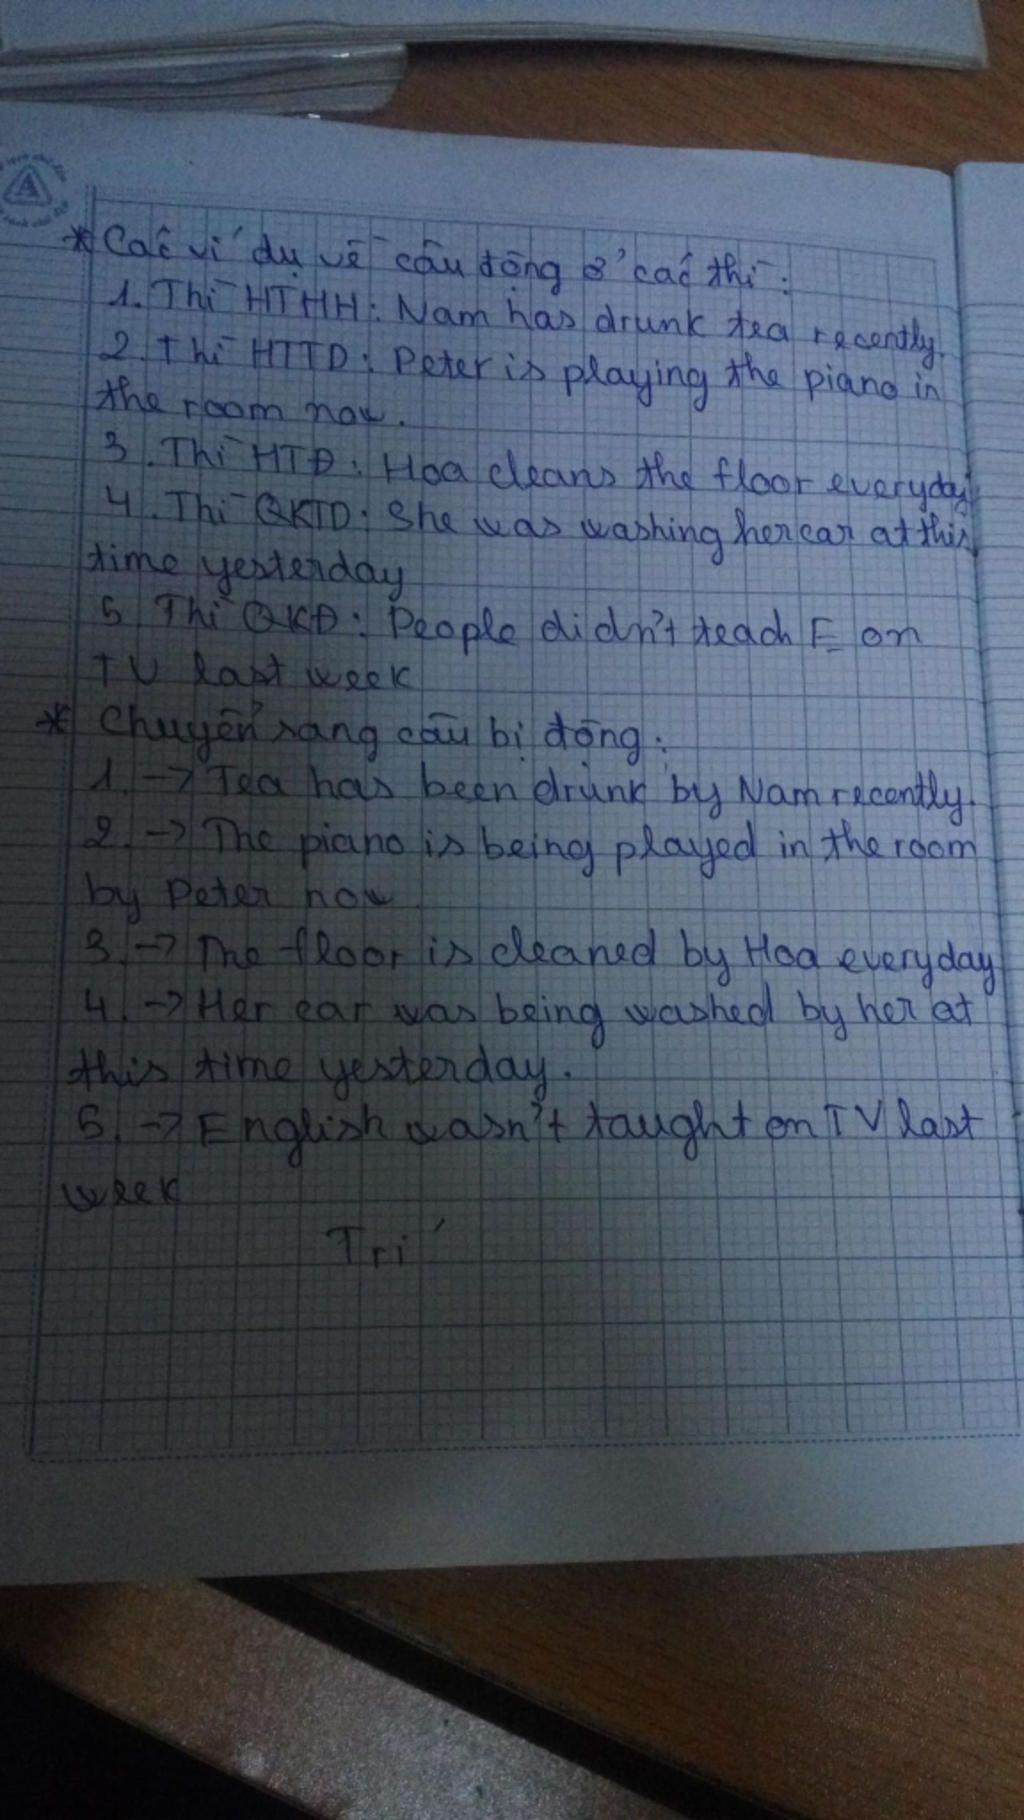 * Các ví dụ về câu động ở các thì:
1. Thì HTHH: Nam has drunk tea recently.
2. Thì HTTD: Peter is playing the piano in
the room now.
3. Thì HTĐ: Hoa cleans the floor everyday
4. Thì QKTD: She was washing her car at this
time yesterday
5. Thì QKĐ: People didn't teach E on
TV last week
* Chuyển sang câu bị động:
1. -> Tea has been drunk by Nam recently.
2. -> The piano is being played in the room
by Peter now.
3. -> The floor is cleaned by Hoa everyday
4. -> Her car was being washed by her at
this time yesterday.
5. -> English wasn't taught on TV last
week
Trí